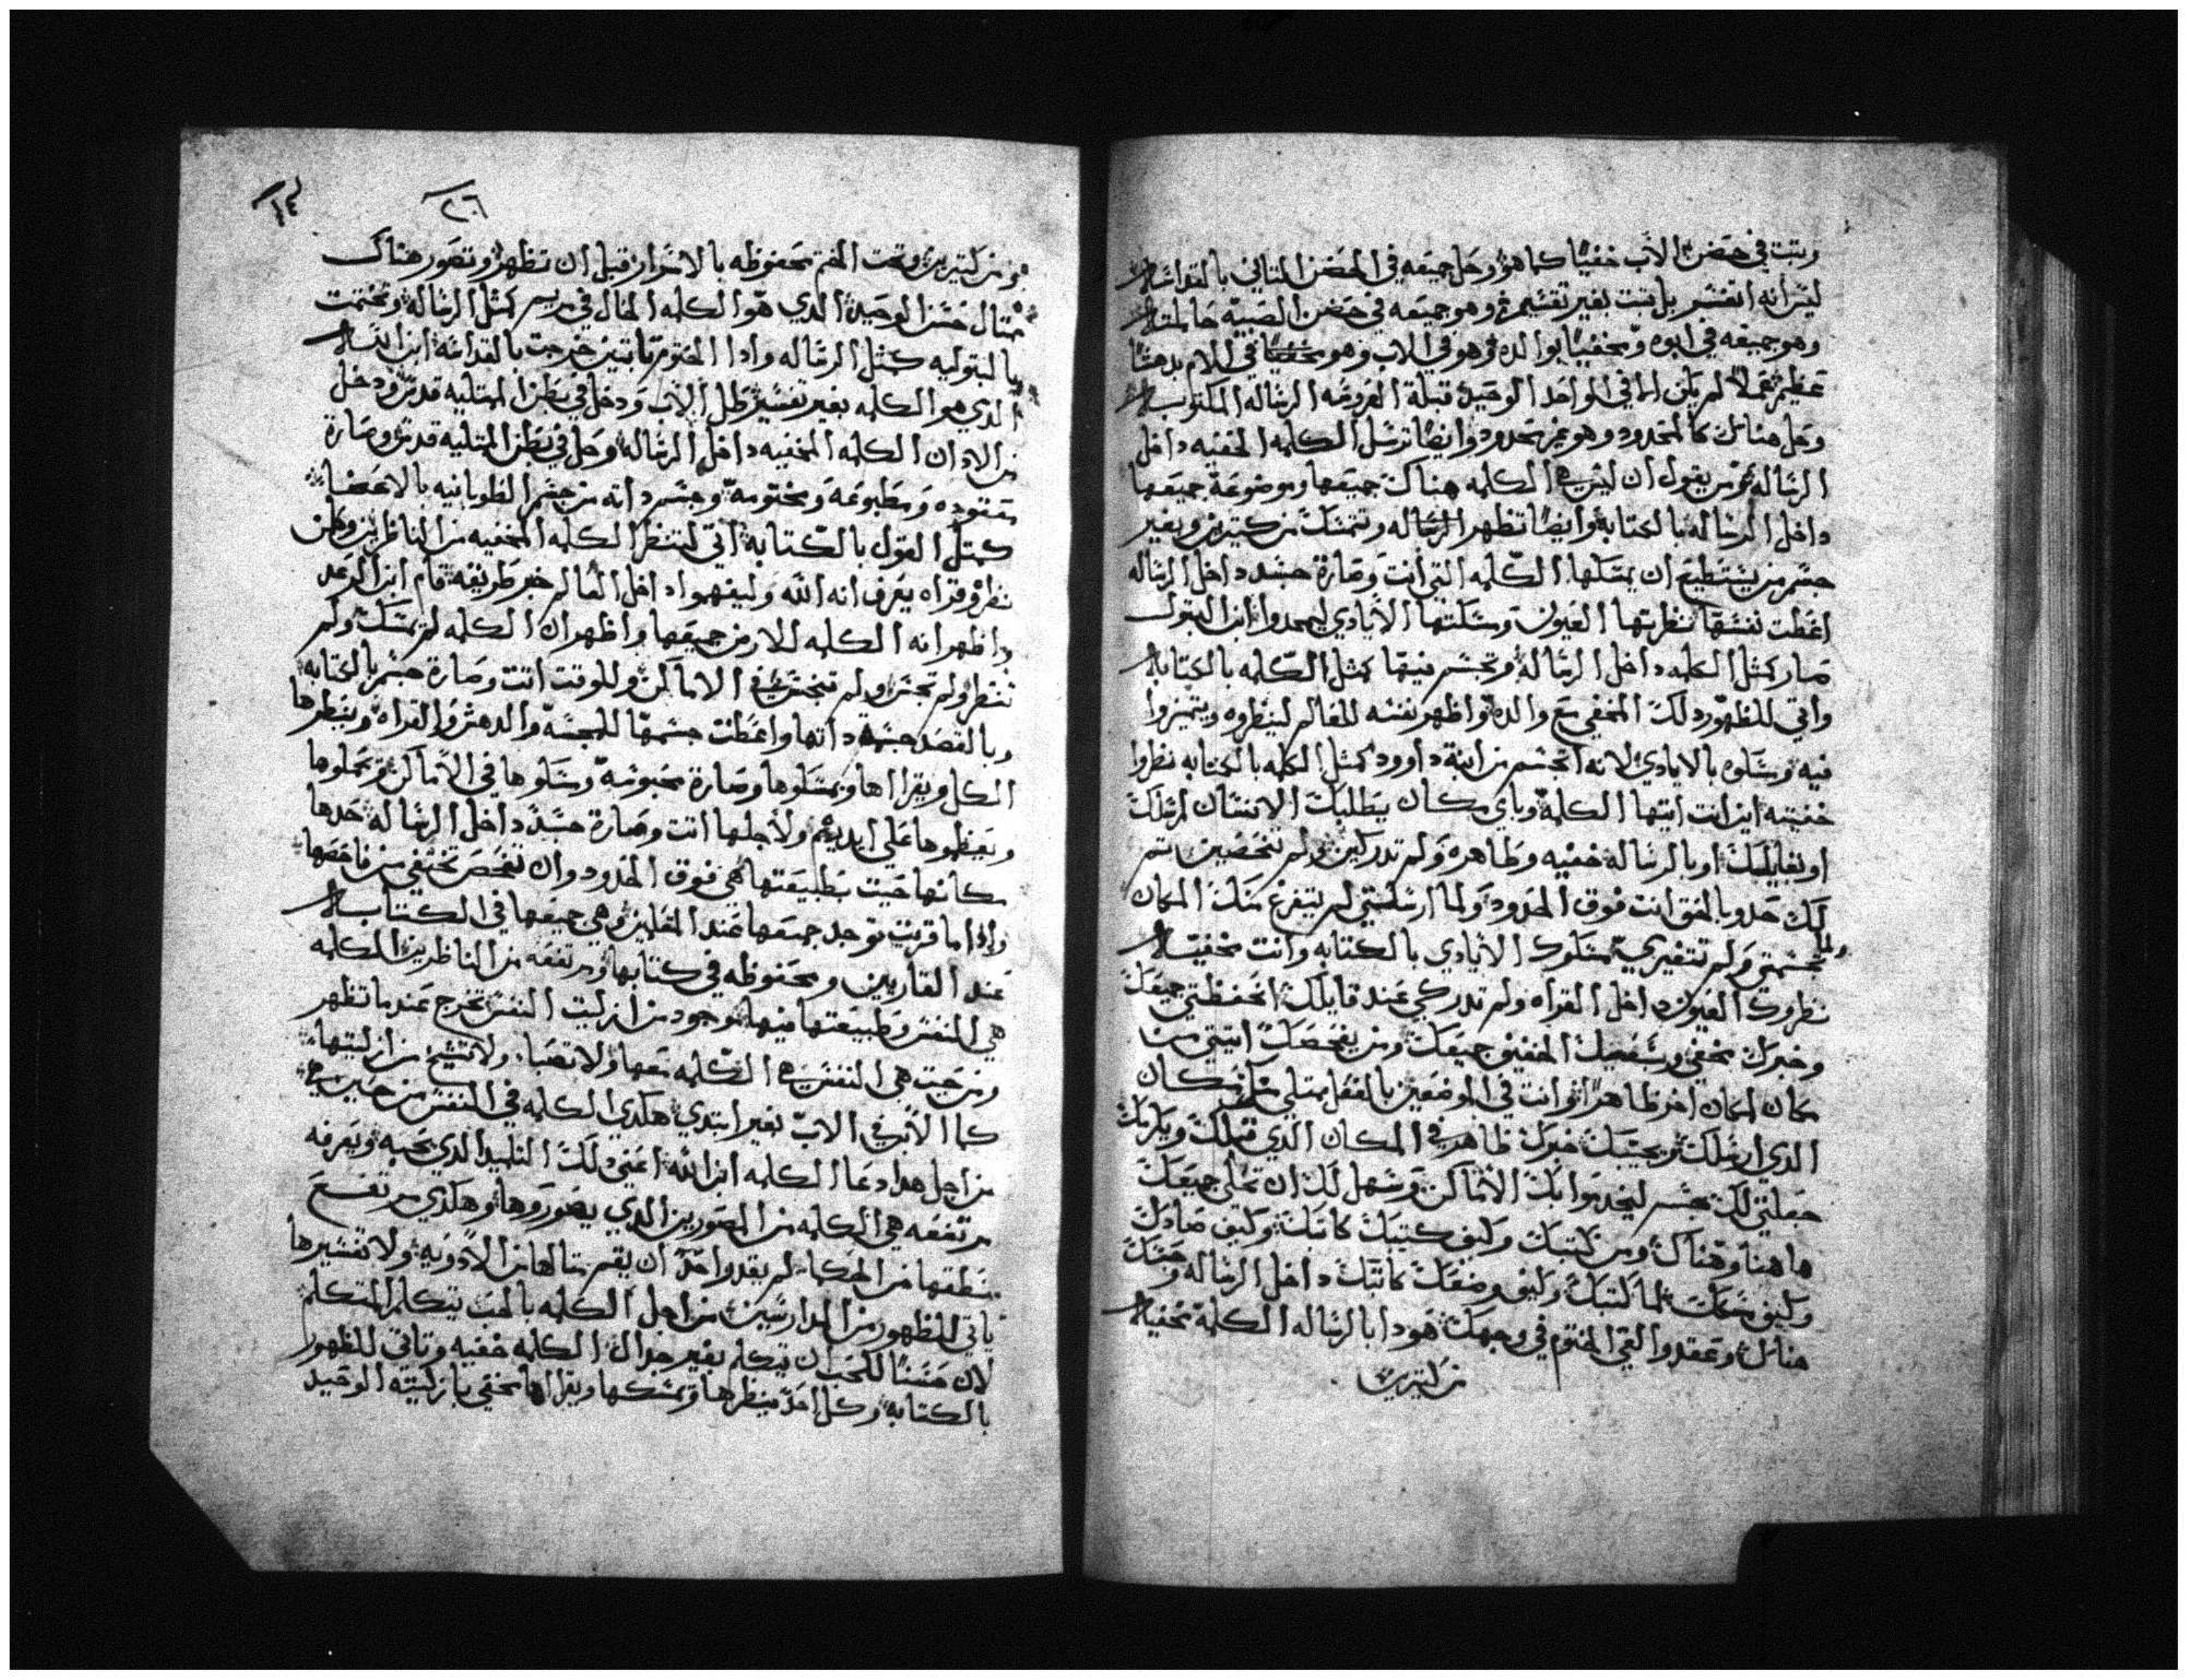 وتبت في حضن الاب خفيًا كما هو وحل جميعه في الحضن المتاني بالقداسه
ليس انه اتقسم بل تبت بغير تقسيم وهو جميعه في حضن الصبيه حاملته
وهو جميعه في ابوه ومخفيًا بوالده وهو في الاب وهو مخفيًا في الام بدهشًا
عظيم عملًا لم يكن الا في الواحد الوحيد قبلة العروسه الرساله المكتوب
وحل هناك كالمحدود وهو غير محدود وايضًا ترسل الكلمه الخفيه داخل
الرساله من يقول ان ليس هي الكلمه هناك جميعها وموضوعة جميعها
داخل الرساله بالكتابه وايضًا تظهر الرساله وتتمسك من كتيرين وبغير
جسم من يستطيع ان يمسكها الكلمه التي اتت وصارة جسد داخل الرساله
اعطت نفسها نظرتها العيون ومسكتها الايادي ليمجدوا ابن البتول
صار كمثل الكلمه داخل الرساله وتجسم فيها كمثل الكلمه بالكتابه
واتى للظهور دلك المخفي مع والده واظهر نفسه للعالم لينظروه ويتميزوا
فيه ومسكوه بالايادي لانه اتجسم من ابنة داوود كمثل الكلمه بالكتابه نظروا
خفيته اين انت ايتها الكلمه وباي مكان يتطلبك الانسان لمرسلك
او لقابلك او بالرساله خفيه وظاهره ولم تدركين ولم تنفحصين ستم
لك حد وبالحق انت فوق الحدود ولما ارسلتني لم يتفرغ منك المكان
ولما تجسمتي ولم تتغيري مسكوك الايادي بالكتابه وانت مخفيه
نظروك العيون داخل القراه ولم تدركي عند قابلك اتحفظتي جميعك
وخبرك مخفي وسمعك الخفيين جميعك ومن يفحصك اتيتي من
مكان لمكان اخر ظاهرًا وانت في الموضعين بالفعل ممتلي مكان
الدي ارسلك مع محبتك خبرك ظاهر في المكان الدي قبلك ويكرمك
جعلتي لك جسم ليخدموا بك الاماكن وسهل لك ان تملي جميعك
هاهنا وهناك ومن كتبك وكيف كتبك كاتبك وكيف صادك
وكيف مسكك لما كتبك وكيف وضعك كاتبك داخل الرساله وحبسك
هناك وعقد والقي الختوم في وجهك هودا بالرساله الكلمة مخفيه
من كتيرين
٢٦
هو من كتيرين وتحت الختم محفوظه بالاسرار قبل ان تظهر وتصور هناك
متال حسن الوحيد الدي هو الكلمه الحال في مريم كمثل الرساله وتختمت
بالبتوليه كمثل الرساله وادا الختوم تابتين خرجت بالقداسه ابن الله
الدي هو الكلمه بغير تفسير طل الاب ودخل في بطن الممتليه قدس ودخل
من الادان الكلمه المخفيه داخل الرساله وحل في بطن الممتليه قدس وصارة
معقوده ومطبوعه ومختومه وجسم داته من جسم الطوبانيه بالاعضا
كمثل القول بالكتابه اتى لتنظر الكلمه المخفيه من الناظرين ولمن
نظره وقراه يعرف انه الله وليفهموا داخل العالم خبر طريقه قام ابن الرعد
واظهر انه الكلمه للارض جميعها واظهر ان الكلمه لم تمسك ولم
تنظر ولم تجس ولم تنحبس في الاماكن وللوقت اتت وصارة جسم بالكتابه
وبالقصد جسمة داتها واعطت جسمها للمجسه والدهش والقراه وينظرها
الكل ويقراها ويمسكوها وصارة محبوسه ومسكوها في الاماكن ويحملوها
ويعطوها على ايديهم ولاجلها اتت وصارة جسدً داخل الرساله حدها
مكانها حيت بطبيعتها هي فوق الحدود وان تفحص تختفي من فاحصها
وادا ما قريت توجد جميعها عند المقلين وهي جميعها في الكتاب
عند القاريين ومحفوظه في كتابها ومرتفعه من الناظرين الكلمه
هي النفس وطبيعتها فيها موجود من ازليت النفس تخرج عندما تظهر
ومن حيت هي النفس هي الكلمه معها ولا تعبا ولا تشيخ من ازليتها
كما الابن في الاب بغير ابتدي هكدي الكلمه في النفس من حين هي
من اجل هدا دعا الكلمه ابن الله اعني دلك التلميد الدي يحبه ويعرفه
مرتفعه هي الكلمه من المصورين الدي يصوروها وهكدي مرتفع
نطقها من الحكما لم يقدر احدً ان يقيم متالها من الادويه ولا تفسيرها
ياتي للظهور من المدارسين من اجل الكلمه بالحب يتكلم المتكلم
لان حسنًا للحب ان يتكلم بغير جدال الكلمه خفيه وتاتي للظهور
بالكتابه وكل احد ينظرها ويمسكها ويقراها مخفي بازليته الوحيد